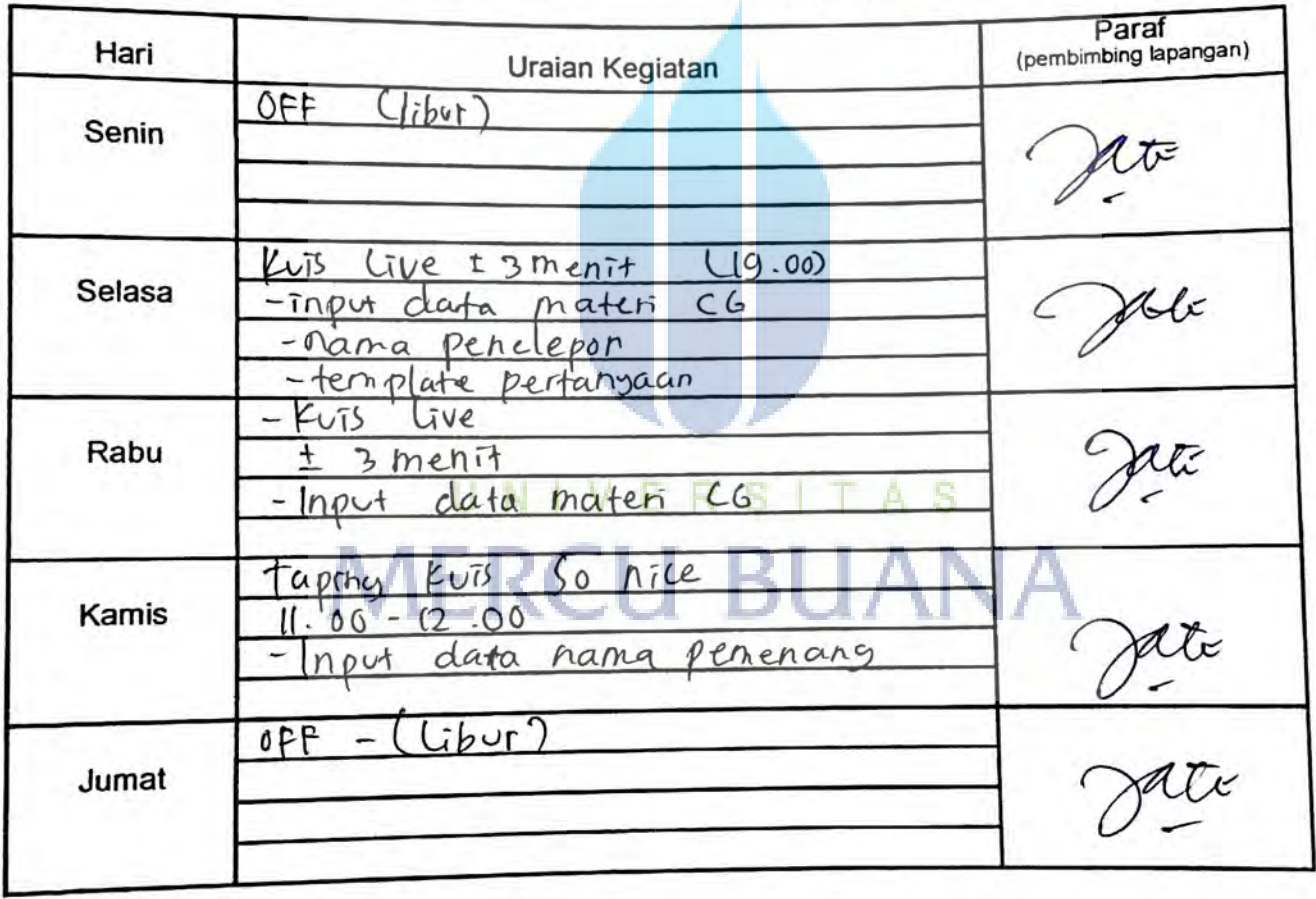 Hari
Uraian Kegiatan
Paraf
(pembimbing lapangan)
Senin
OFF (libur)
Selasa
Kuis Live ± 3 menit (19.00)
- input data materi CG
- nama penelepon
- template pertanyaan
Rabu
- Kuis Live
± 3 menit
- Input data materi CG
UNIVERSITAS
MERCU BUANA
Kamis
Taping Kuis So nice
11.00 - 12.00
- Input data nama pemenang
Jumat
OFF - (Libur)